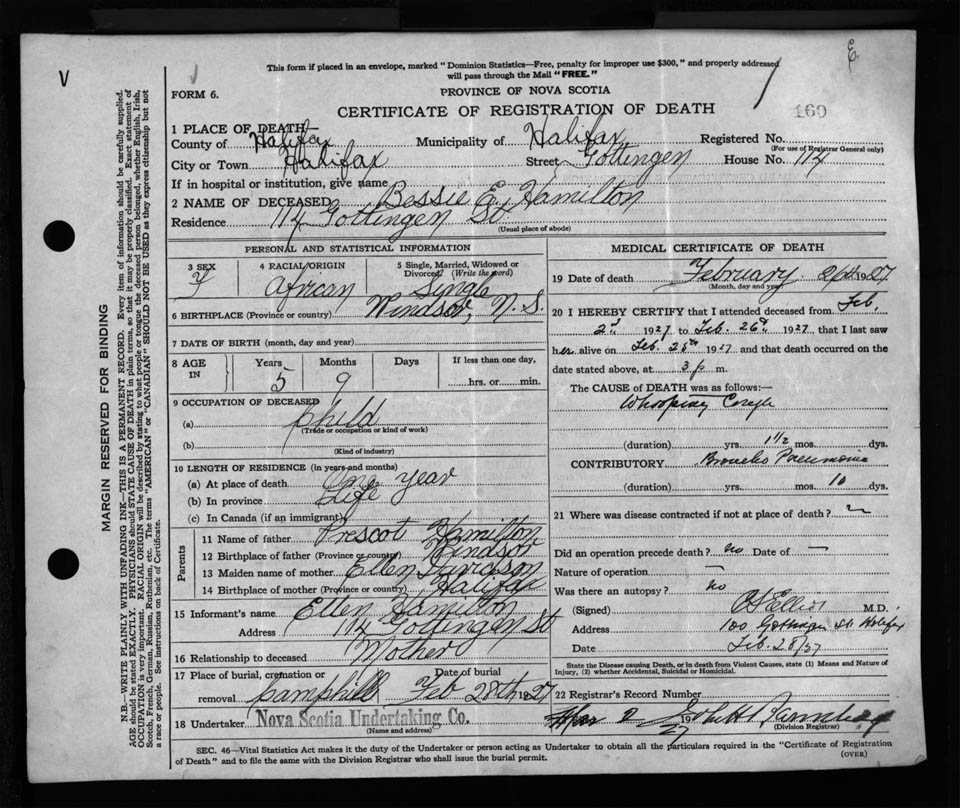 This form if placed in an envelope, marked "Dominion Statistics—Free, penalty for improper use $300," and properly addressed
will pass through the Mail "FREE."
V
FORM 6.
PROVINCE OF NOVA SCOTIA
CERTIFICATE OF REGISTRATION OF DEATH
160
1 PLACE OF DEATH—
County of Halifax Municipality of Halifax Registered No.
(For use of Registrar General only)
City or Town Halifax Street Gottingen House No. 114
If in hospital or institution, give name
2 NAME OF DECEASED Bessie E. Hamilton
Residence 114 Gottingen St
(Usual place of abode)
PERSONAL AND STATISTICAL INFORMATION
3 SEX F
4 RACIAL ORIGIN African
5 Single, Married, Widowed or
Divorced (Write the word)
Single
6 BIRTHPLACE (Province or country) Windsor, N. S.
7 DATE OF BIRTH (month, day and year)
8 AGE IN
Years Months Days If less than one day,
5 9 hrs. or min.
9 OCCUPATION OF DECEASED
(a) Child
(Trade or occupation or kind of work)
(b)
(Kind of industry)
10 LENGTH OF RESIDENCE (in years and months)
(a) At place of death One year
(b) In province Life
(c) In Canada (if an immigrant)
Parents
11 Name of father Prescot Hamilton
12 Birthplace of father (Province or country) Windsor
13 Maiden name of mother Ellen Davidson
14 Birthplace of mother (Province or country) Halifax
15 Informant's name Ellen Hamilton
Address 114 Gottingen St
16 Relationship to deceased Mother
17 Place of burial, cremation or Date of burial
removal Camphill Feb 28th 1927
18 Undertaker Nova Scotia Undertaking Co.
(Name and address)
MEDICAL CERTIFICATE OF DEATH
19 Date of death February 1927
(Month, day and year)
20 I HEREBY CERTIFY that I attended deceased from Feb.
2nd 1927 to Feb. 26th 1927, that I last saw
her alive on Feb. 25th 1927 and that death occurred on the
date stated above, at 3 p m.
The CAUSE of DEATH was as follows:—
Whooping Cough
(duration) yrs. 1½ mos. dys.
CONTRIBUTORY Broncho Pneumonia
(duration) yrs. mos. 10 dys.
21 Where was disease contracted if not at place of death?
Did an operation precede death? no Date of —
Nature of operation —
Was there an autopsy? no
(Signed) Elliot M.D.
Address 100 Gottingen St Halifax
Date Feb. 28/27
State the Disease causing Death, or in death from Violent Causes, state (1) Means and Nature of
Injury, (2) whether Accidental, Suicidal or Homicidal.
22 Registrar's Record Number
19 27 John H
(Division Registrar)
SEC. 46—Vital Statistics Act makes it the duty of the Undertaker or person acting as Undertaker to obtain all the particulars required in the "Certificate of Registration
of Death" and to file the same with the Division Registrar who shall issue the burial permit.
(OVER)
MARGIN RESERVED FOR BINDING
N.B.—WRITE PLAINLY WITH UNFADING INK—THIS IS A PERMANENT RECORD. Every item of information should be carefully supplied.
AGE should be stated EXACTLY. PHYSICIANS should STATE CAUSE OF DEATH in plain terms, so that it may be properly classified. Exact statement of
OCCUPATION is very important. RACIAL ORIGIN will be described by stating to what people or tongue the deceased person belonged, whether English, Irish,
Scotch, French, German, Russian, Ruthenian, etc. The terms "AMERICAN" or "CANADIAN" SHOULD NOT BE USED as they express citizenship but not
a race or people. See instructions on back of Certificate.